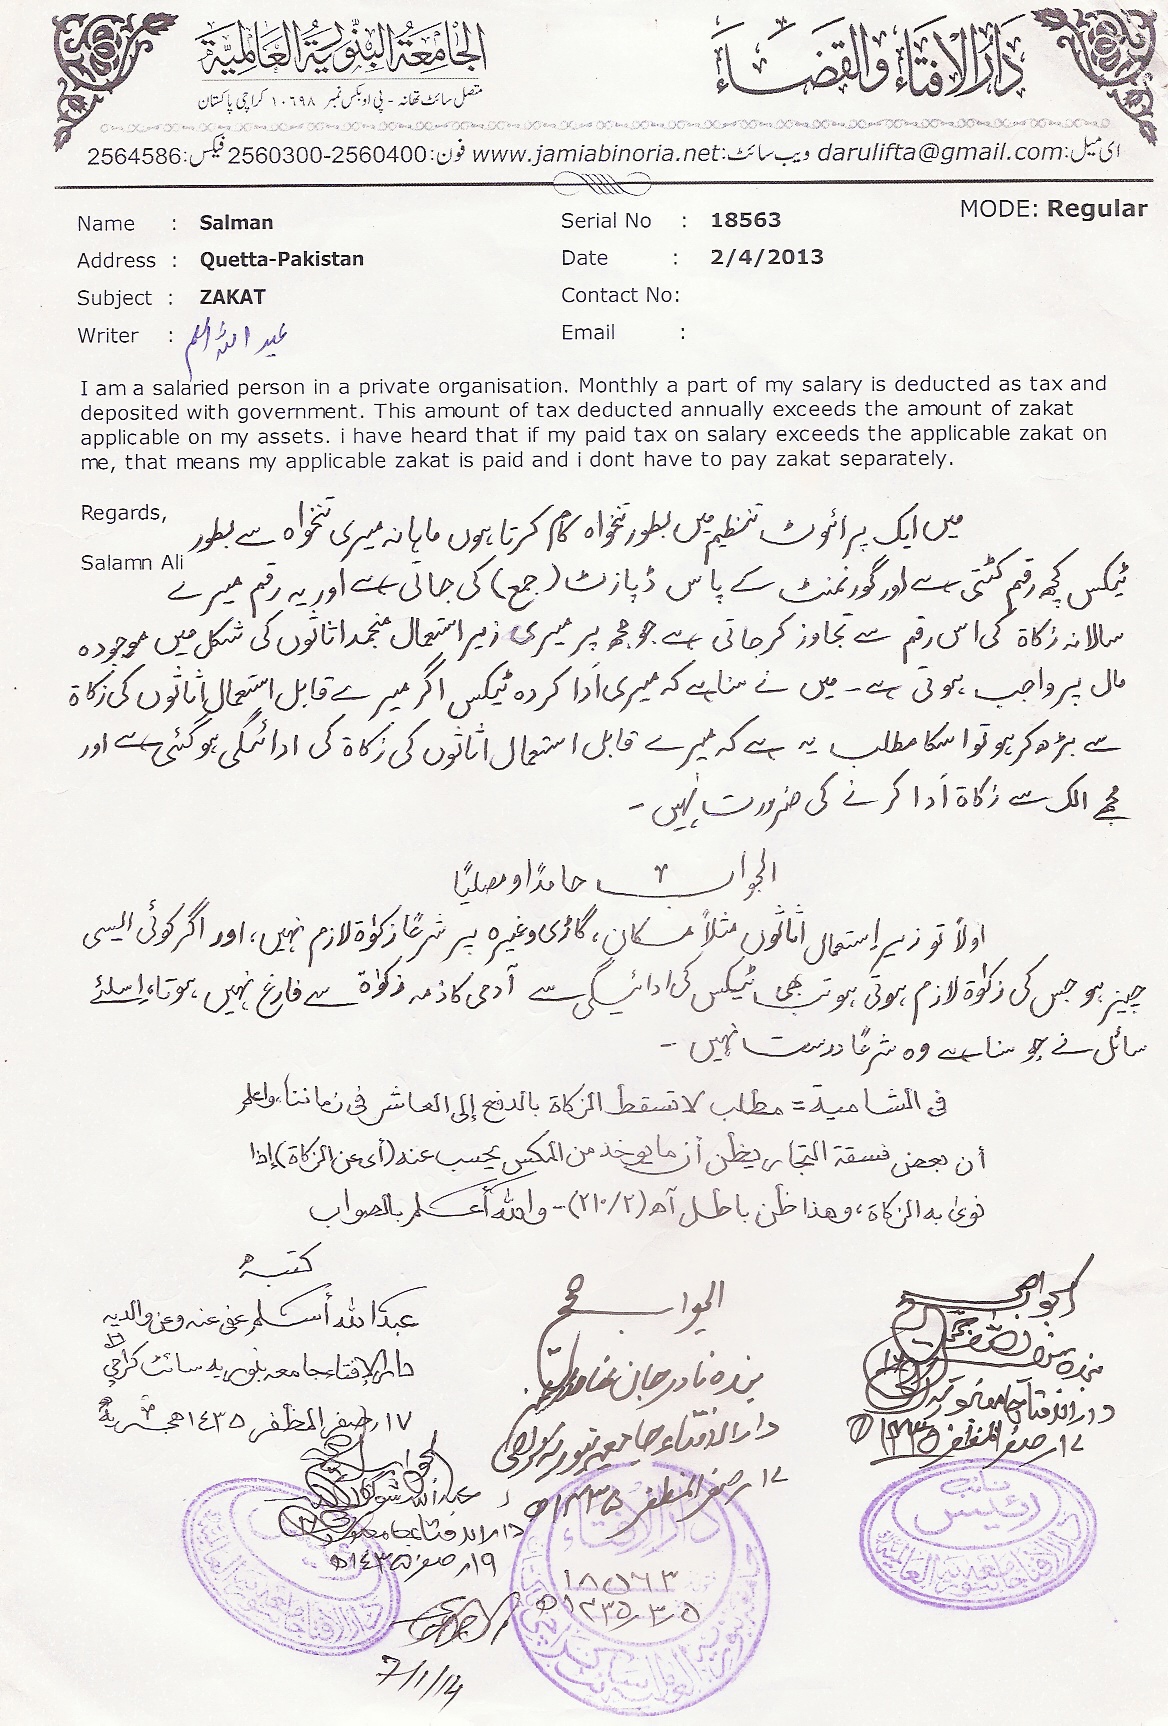 دَارُ الافتَاء وَالقضَاء
الجَامِعَةُ البِنّورِيَّة العَالمِيَّة
متصل سائٹ تھانہ - پی او بکس نمبر ۱۰۶۹۸ کراچی پاکستان
ای میل:darulifta@gmail.com ویب سائٹ:www.jamiabinoria.net فون:2560300-2560400 فیکس:2564586
MODE: Regular
Name : Salman
Serial No : 18563
Address : Quetta-Pakistan
Date : 2/4/2013
Subject : ZAKAT
Contact No:
Writer : عبد اللہ اسلم
Email :
I am a salaried person in a private organisation. Monthly a part of my salary is deducted as tax and
deposited with government. This amount of tax deducted annually exceeds the amount of zakat
applicable on my assets. i have heard that if my paid tax on salary exceeds the applicable zakat on
me, that means my applicable zakat is paid and i dont have to pay zakat separately.
Regards,
Salamn Ali
میں ایک پرائوٹ تنظیم میں بطور تنخواہ کام کرتا ہوں ماہانہ میری تنخواہ سے بطور
ٹیکس کچھ رقم کٹتی ہے اور گورنمنٹ کے پاس ڈپازٹ (جمع) کی جاتی ہے اور یہ رقم میرے
سالانہ زکاۃ کی اس رقم سے تجاوز کر جاتی ہے جو مجھ پر میری زیر استعمال منجمد اثاثوں کی شکل میں موجودہ
مال پر واجب ہوتی ہے ۔ میں نے سنا ہے کہ میری اَدا کردہ ٹیکس اگر میرے قابل استعمال اثاثوں کی زکاۃ
سے بڑھ کر ہو تو اسکا مطلب یہ ہے کہ میرے قابل استعمال اثاثوں کی زکاۃ کی ادائگی ہو گئی ہے اور
مجھے الگ سے زکاۃ اَدا کرنے کی ضرورت نہیں ۔
الجواب حامدًا و مصلیًا
اولاً تو زیرِ اِستعمال اثاثوں مثلاً مکان، گاڑی وغیرہ پر شرعًا زکوٰۃ لازم نہیں، اور اگر کوئی ایسی
چیز ہو جس کی زکوٰۃ لازم ہوتی ہو تب بھی ٹیکس کی ادائیگی سے آدمی کا ذمہ زکوٰۃ سے فارغ نہیں ہوتا، اِسلئے
سائل نے جو سنا ہے وہ شرعًا درست نہیں ۔
فی الشامیۃ = مطلب لا تسقط الزکاۃ بالدفع إلی العاشر فی زماننا، واعلم
أن بعض فسقۃ التجار یظن أن ما یوخد من المکس یحسب عنہ (أی عن الزکاۃ) إذا
نوی بہ الزکاۃ، وھذا ظن باطل اھ (۲/۲۱۰) ۔ واللہ أعلم بالصواب
کتبہ
عبد اللہ أسلم عفی عنہ وعن والدیہ
دار الإفتاء جامعہ بنوریہ سائٹ کراچی
۱۷ صفر المظفر ۱۴۳۵ ھجریۃ
الجواب صحیح
بندہ نادر جان
دار الافتاء جامعہ بنوریہ کراچی
۱۷ صفر المظفر ۱۴۳۵ھ
الجواب صحیح
بندہ
دار الافتاء جامعہ بنوریہ
۱۷ صفر المظفر ۱۴۳۵ھ
الجواب صحیح
عبد اللہ شوکت
دار الافتاء جامعہ بنوریہ
۱۹ صفر ۱۴۳۵ھ
7/1/14
دار الافتاء
۱۸۵۶۳
۱۴۳۵.۳.۵ھ
نائب
رئیس
دار الافتاء جامعہ بنوریہ العالمیۃ